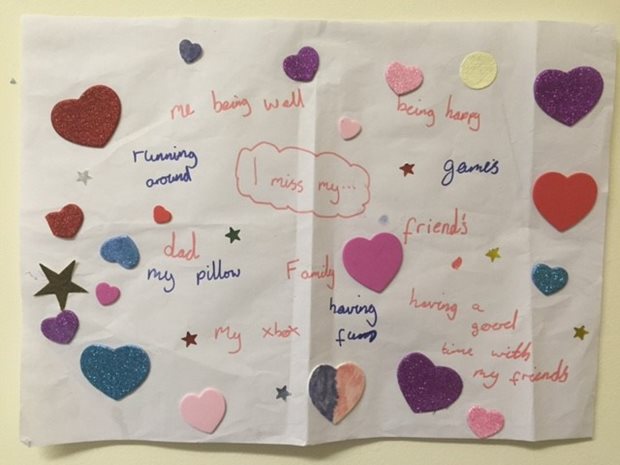 me being well
being happy
running
around
I miss my...
games
friends
dad
my pillow
Family
having
having a
good
my xbox
time with
my friends